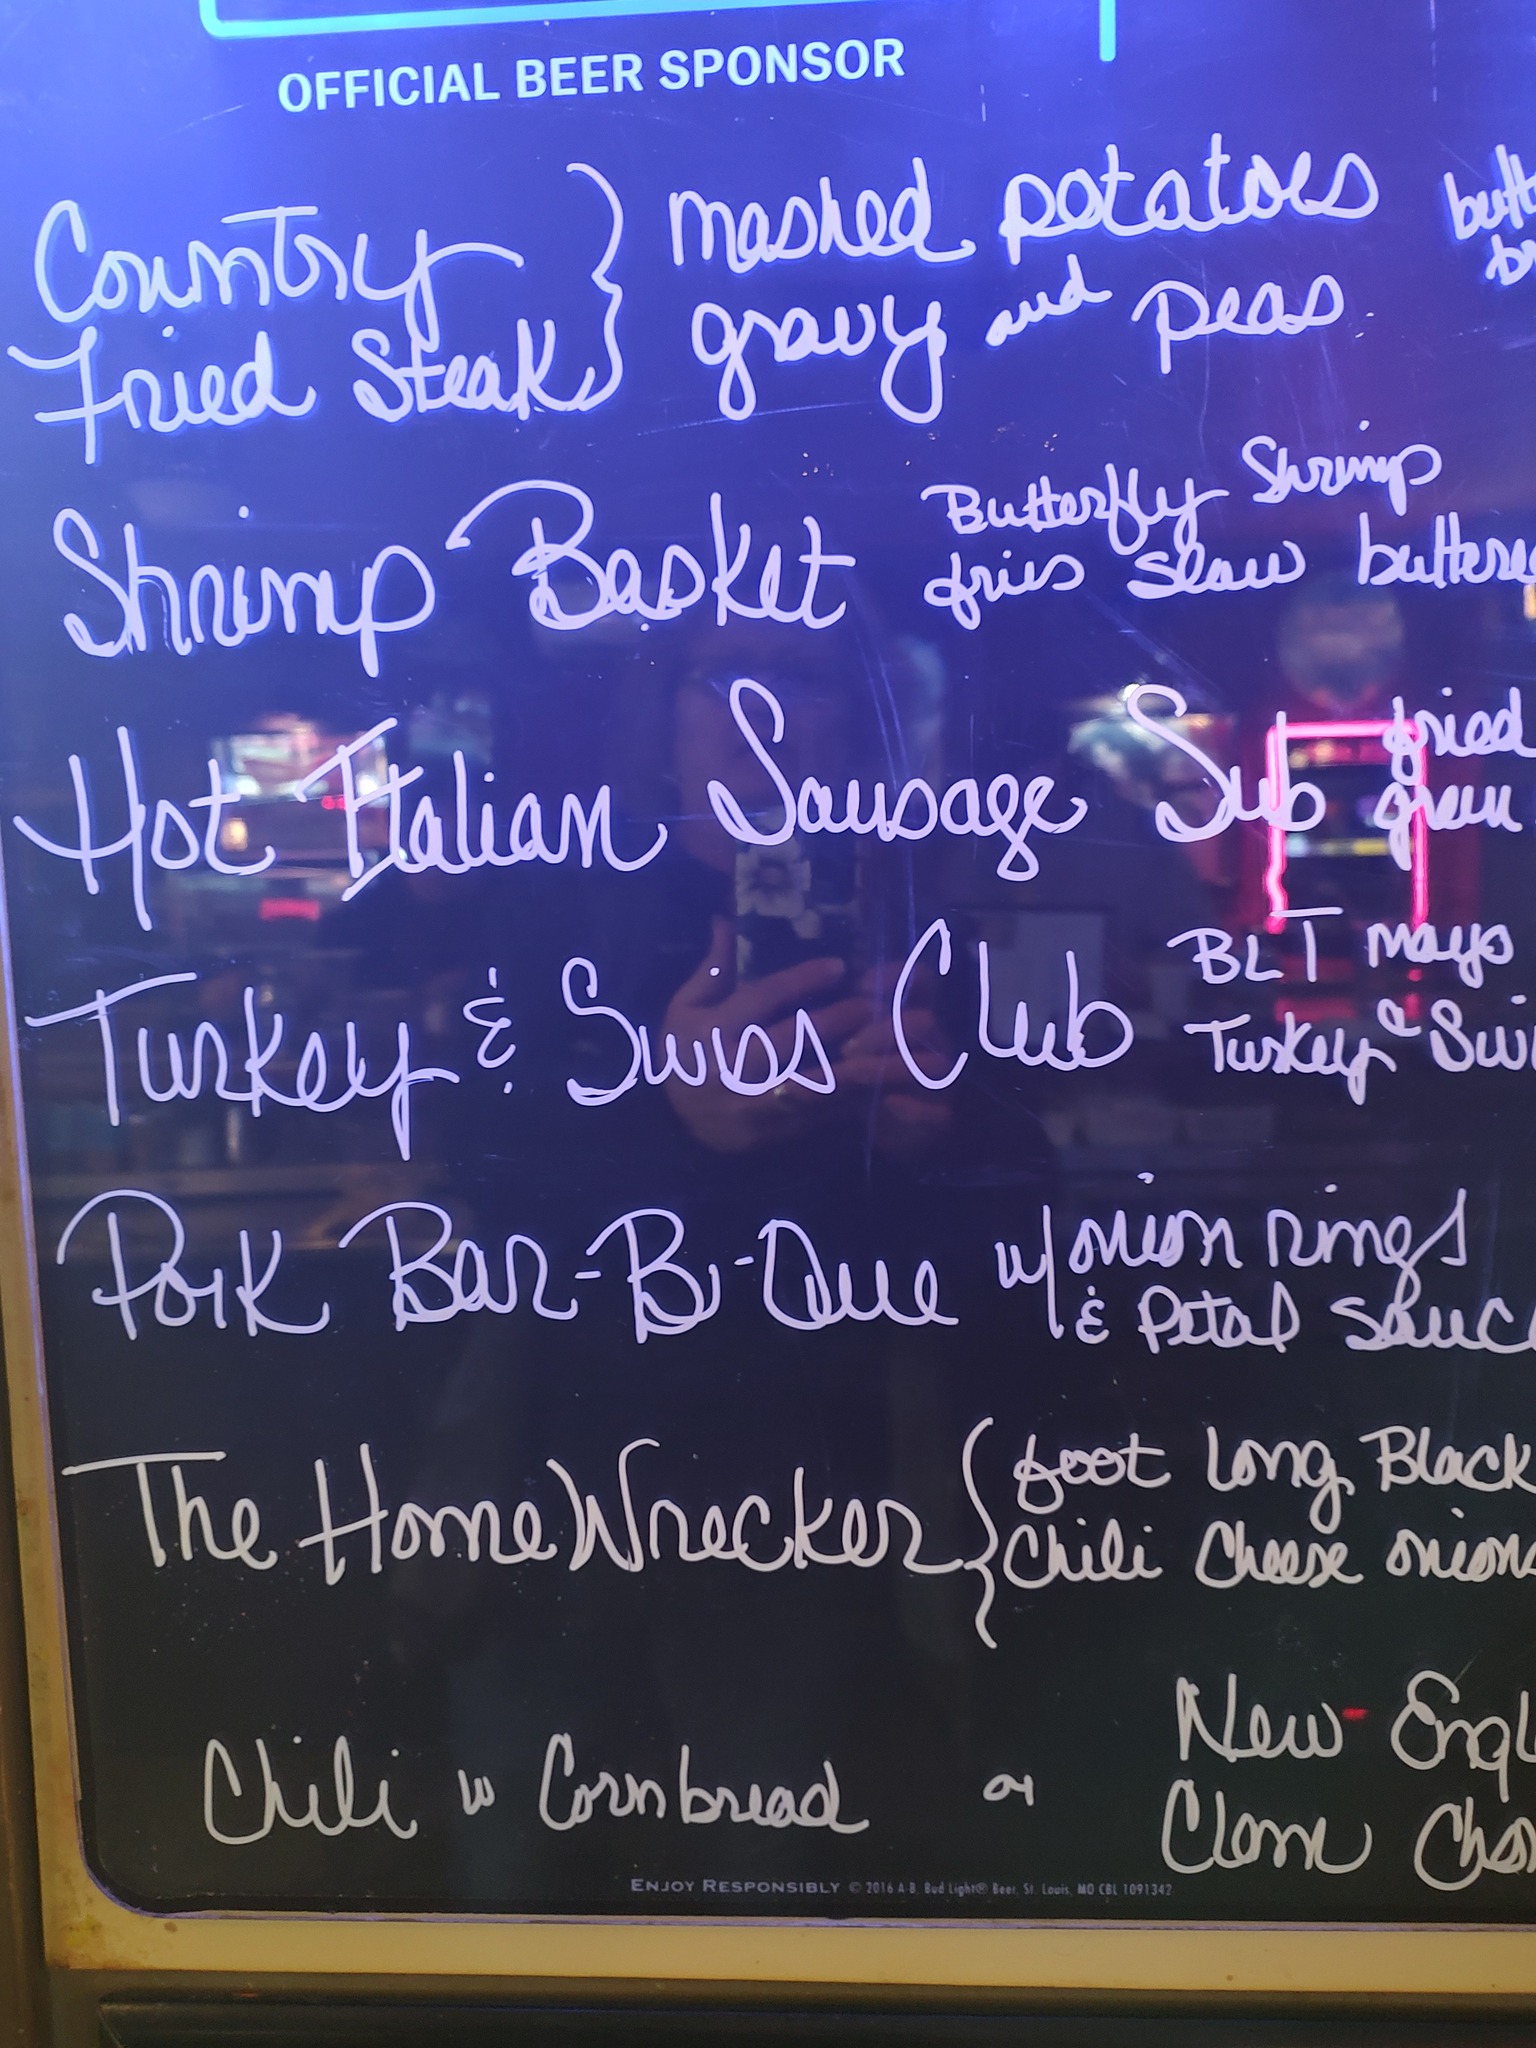 OFFICIAL BEER SPONSOR
Country } mashed potatoes
Fried Steak gravy and peas
Shrimp Basket Butterfly Shrimp
fries slaw buttere
Hot Italian Sausage Sub fried
green
Turkey & Swiss Club BLT mayo
Turkey & Swi
Pork Bar-B-Que w/ onion rings
& Petal Sauc
The HomeWrecker { foot long Black
Chili Cheese onions
Chili w Cornbread or New Engl
Clam Cho
ENJOY RESPONSIBLY © 2016 A-B, Bud Light® Beer, St. Louis, MO CBL 1091342